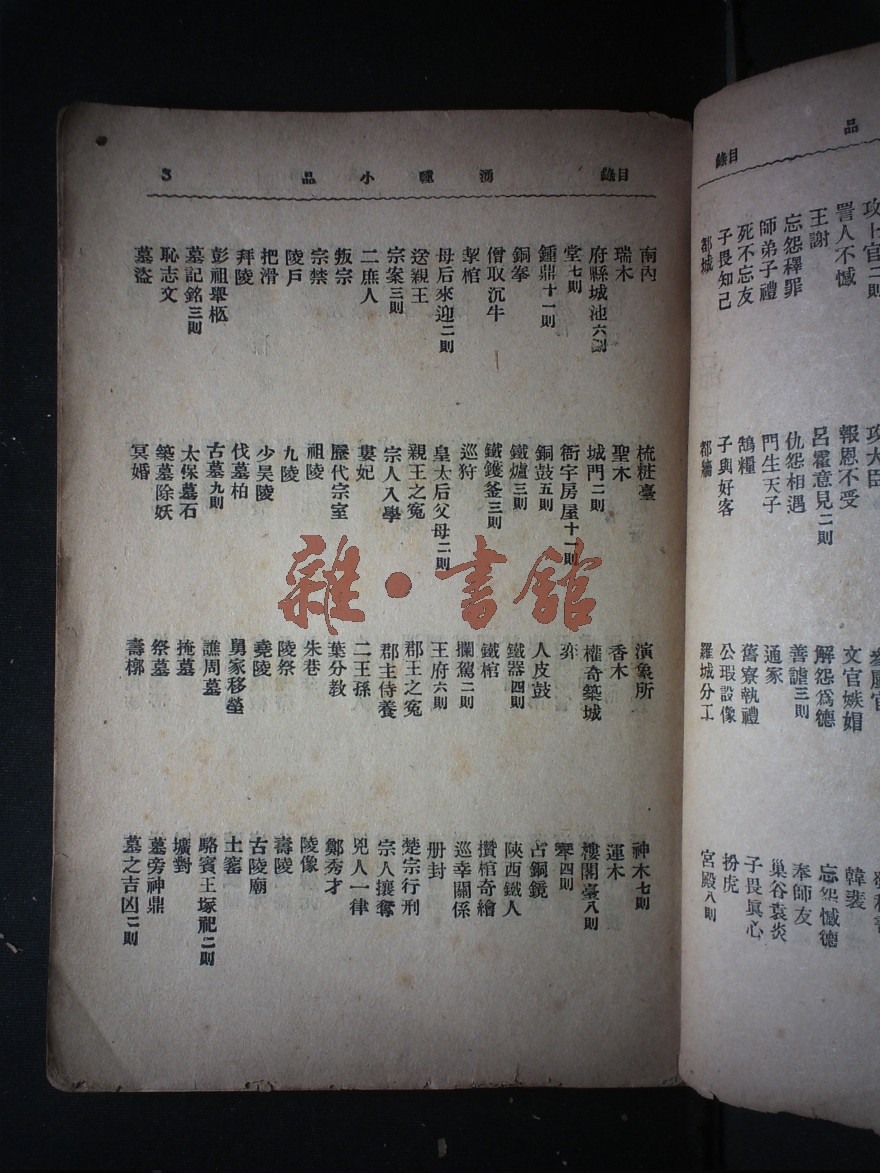 品
目錄
攻大臣
詈人不憾 報恩不受 文官嫉娼 韓裴
王謝 呂霍意見二則 解怨爲德 忘怨憾德
忘怨釋罪 仇怨相遇 善謔三則 奉師友
師弟子禮 門生天子 通家 巢谷袁炎
死不忘友 鵠糧 舊寮執禮 子畏眞心
子畏知己 子與好客 公瑕設像 扮虎
都城 都牆 羅城分工 宮殿八則
目錄 湧幢小品 3
南內 梳粧臺 演象所 神木七則
瑞木 聖木 香木 運木
府縣城池六則 城門二則 權奇築城 樓閣臺八則
堂七則 衙宇房屋十一則 弈 琴四則
鍾鼎十一則 銅鼓五則 人皮鼓 占銅鏡
銅拳 鐵爐三則 鐵器四則 陝西鐵人
僧取沉牛 鐵鑊釜三則 鐵棺 攢棺奇繪
挈棺 巡狩 攔駕二則 巡幸關係
母后來迎二則 皇太后父母二則 王府六則 册封
送親王 親王之寃 郡王之寃 楚宗行刑
宗案三則 宗人入學 郡主侍養 宗人攘奪
二庶人 婁妃 二王孫 兇人一律
叛宗 歷代宗室 葉分敎 鄭秀才
宗禁 祖陵 朱巷 陵像
陵戶 九陵 陵祭 壽陵
把滑 少昊陵 堯陵 古陵廟
拜陵 伐墓柏 舅家移塋 土窰
彭祖舉柩 古墓九則 譙周墓 駱賓王塚祀二則
墓記銘三則 太保墓石 掩墓 壙對
恥志文 築墓除妖 祭墓 墓旁神鼎
墓盜 冥婚 壽槨 墓之吉凶二則
雜·書館